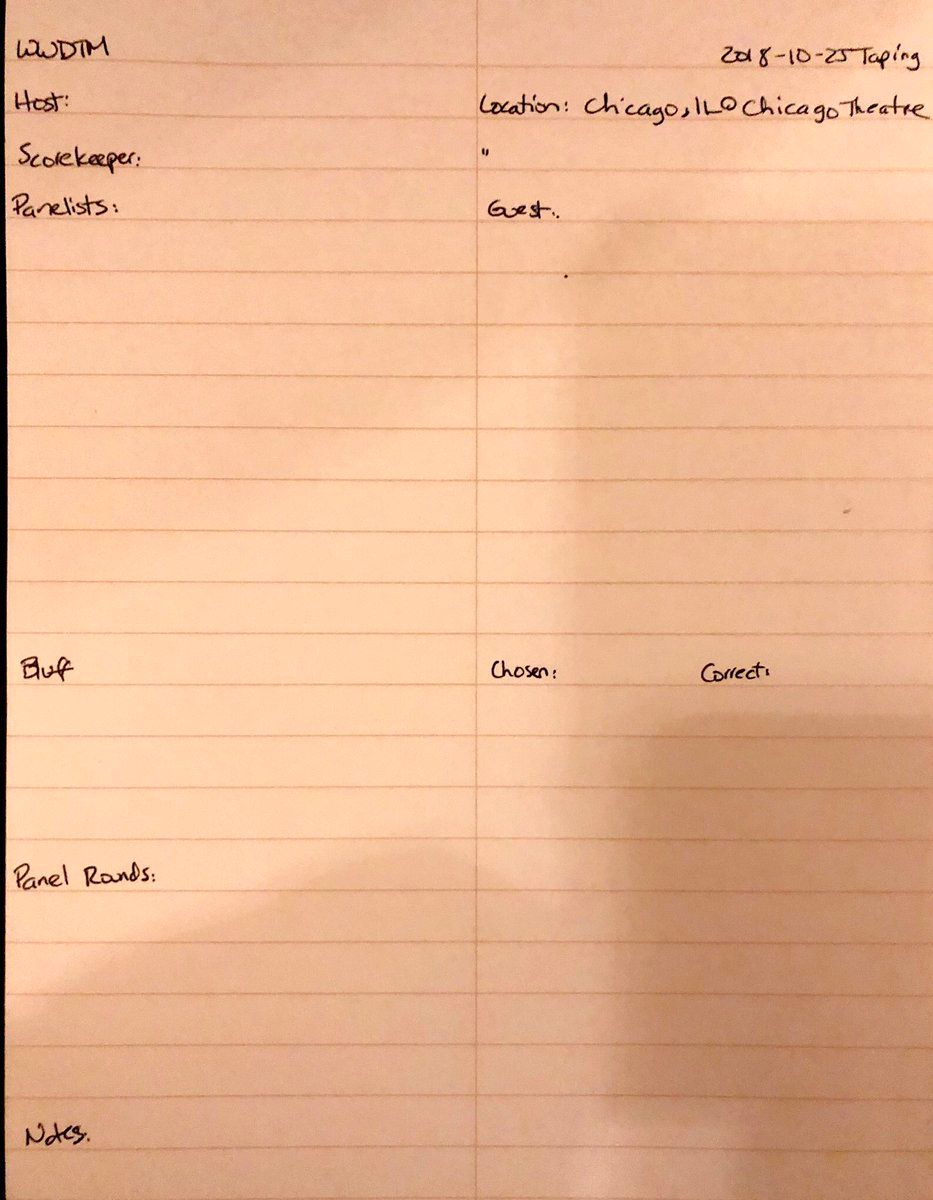 WWDTM 2018-10-25 Taping
Host: Location: Chicago, IL @ Chicago Theatre
Scorekeeper: "
Panelists: Guest:
Bluff Chosen: Correct:
Panel Rounds:
Notes.